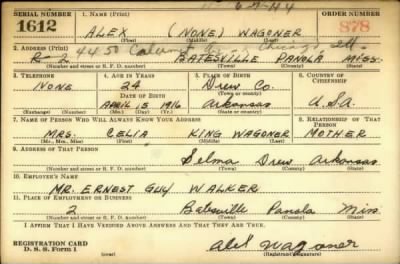 SERIAL NUMBER 1. NAME (Print) ORDER NUMBER
1612 ALEX (NONE) WAGONER 878
(First) (Middle) (Last)
2. ADDRESS (Print) 4450 Chicago, Ill.
R-2 BATESVILLE PANOLA MISS.
(Number and street or R. F. D. number) (Town) (County) (State)
3. TELEPHONE 4. AGE IN YEARS 5. PLACE OF BIRTH 6. COUNTRY OF CITIZENSHIP
NONE 24 Drew Co.
DATE OF BIRTH (Town or county)
APRIL 15 1916 Arkansas U.S.A.
(Exchange) (Number) (Mo.) (Day) (Yr.) (State or country)
7. NAME OF PERSON WHO WILL ALWAYS KNOW YOUR ADDRESS 8. RELATIONSHIP OF THAT PERSON
MRS. CELIA KING WAGONER MOTHER
(Mr., Mrs., Miss) (First) (Middle) (Last)
9. ADDRESS OF THAT PERSON
Selma Drew Arkansas
(Number and street or R. F. D. number) (Town) (County) (State)
10. EMPLOYER'S NAME
MR. ERNEST GUY WALKER
11. PLACE OF EMPLOYMENT OR BUSINESS
2 Batesville Panola Miss
(Number and street or R. F. D. number) (Town) (County) (State)
I AFFIRM THAT I HAVE VERIFIED ABOVE ANSWERS AND THAT THEY ARE TRUE.
REGISTRATION CARD
D. S. S. Form 1 (over) Alex Wagoner
(Registrant's signature)